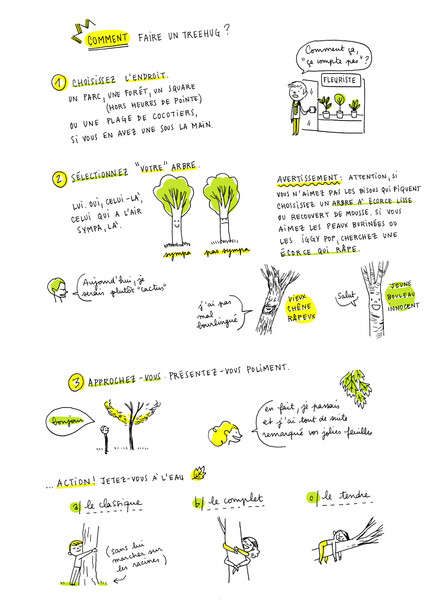 COMMENT FAIRE UN TREEHUG ?
1 CHOISISSEZ L'ENDROIT.
UN PARC, UNE FORÊT, UN SQUARE
(HORS HEURES DE POINTE)
OU UNE PLAGE DE COCOTIERS,
SI VOUS EN AVEZ UNE SOUS LA MAIN.
Comment ça,
"ça compte pas"?
FLEURISTE
2 SÉLECTIONNEZ "VOTRE" ARBRE.
LUI. OUI, CELUI-LÀ,
CELUI QUI A L'AIR
SYMPA, LÀ.
sympa
pas sympa
AVERTISSEMENT: ATTENTION, SI
VOUS N'AIMEZ PAS LES BISOUS QUI PIQUENT
CHOISISSEZ UN ARBRE À ÉCORCE LISSE
OU RECOUVERT DE MOUSSE. SI VOUS
AIMEZ LES PEAUX BURINÉES OU
LES IGGY POP, CHERCHEZ UNE
ÉCORCE QUI RÂPE.
Aujourd'hui, je
serais plutôt "cactus"
j'ai pas
mal
bourlingué
VIEUX
CHÊNE
RÂPEUX
Salut
JEUNE
BOULEAU
INNOCENT
3 APPROCHEZ-VOUS. PRÉSENTEZ-VOUS POLIMENT.
Bonjour
en fait, je passais
et j'ai tout de suite
remarqué vos jolies feuilles
... ACTION! JETEZ-VOUS À L'EAU
a) le classique
b) le complet
c) le tendre
(sans lui
marcher sur
les racines)